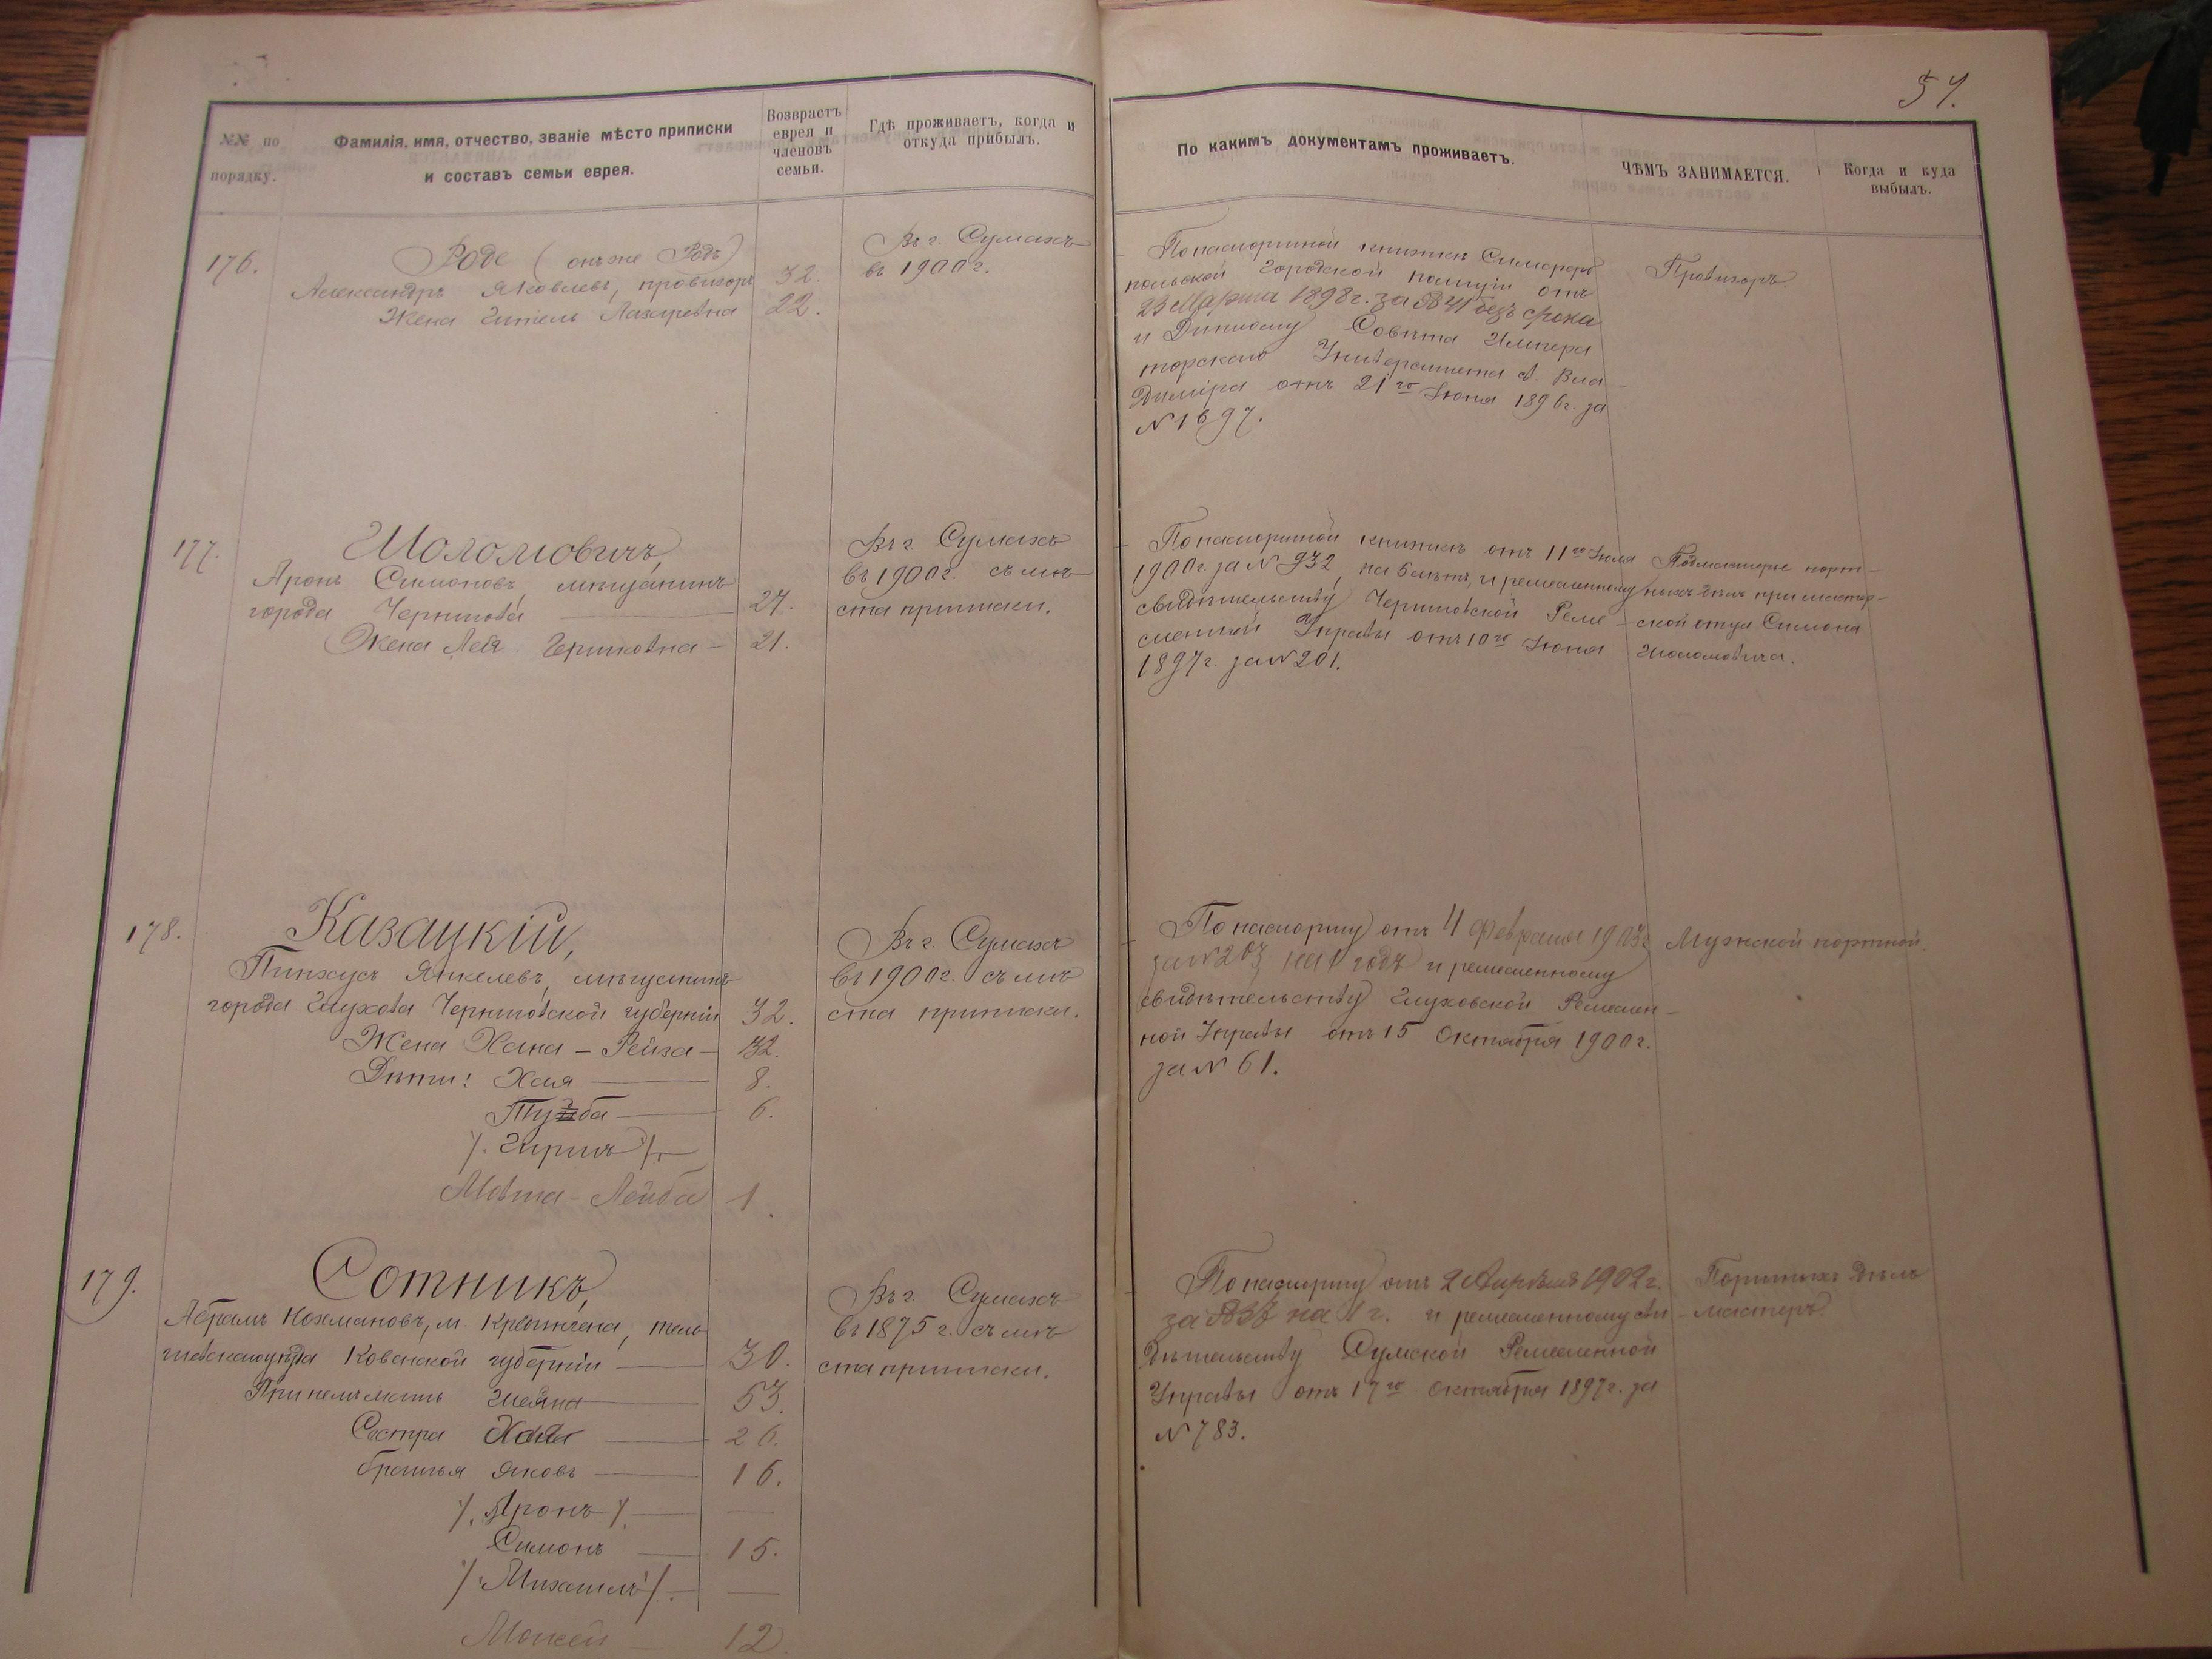 57.
№№ по порядку.
Фамилія, имя, отчество, званіе мѣсто приписки
и составъ семьи еврея.
Возврастъ
еврея и
членовъ
семьи.
Гдѣ проживаетъ, когда и
откуда прибылъ.
По какимъ документамъ проживаетъ.
ЧѢМЪ ЗАНИМАЕТСЯ.
Когда и куда
выбылъ.
176.
Роде (онъ же Родъ)
Александръ Яковлевъ, провизоръ 32.
Жена Гитель Лазаревна 22.
Въ г. Сумахъ
въ 1900 г.
По паспортной книжкѣ Симферо
польской Городской полиціи отъ
23 Марта 1898 г. за № 41 безъ срока
и Диплому Совѣта Импера
торскаго Университета Св. Вла-
диміра отъ 21го Іюня 1896 г. за
№ 1697.
Провизоръ.
177.
Шоломовичъ,
Аронъ Симоновъ, мѣщанинъ
города Чернигова 27.
Жена Лея 21.
Въ г. Сумахъ
въ 1900 г. съ мѣ
ста приписки.
По паспортной книжкѣ отъ 11го Іюля
1900 г. за № 932, на 5 лѣтъ, и ремесленному
свидѣтельству Черниговской Реме-
сленной Управы отъ 10го Іюня
1897 г. за № 201.
Подмастерье порт-
ныхъ дѣлъ при мастер-
ской отца Симона
Шоломовича.
178.
Казацкій,
Пинхусъ Янкелевъ, мѣщанинъ
города Глухова Черниговской губерніи 32.
Жена Хана-Рейза 32.
Дѣти: Хая 8.
6.
Гиршъ
Лейба 1.
Въ г. Сумахъ
въ 1900 г. съ мѣ
ста приписки.
По паспорту отъ 4 февраля 1903 г.
за № 203 на 1 годъ и ремесленному
свидѣтельству Глуховской Ремеслен-
ной Управы отъ 15 Октября 1900 г.
за № 61.
Мужской портной.
179.
Сотникъ,
Абрамъ Нохмановъ, м. Кретингена, тель-
шевскаго уѣзда Ковенской губерніи 30.
При немъ мать Шейна 53.
Сестра Хая 26.
братья Яковъ 16.
Аронъ
Симонъ 15.
Михаилъ
Моисей 12.
Въ г. Сумахъ
въ 1875 г. съ мѣ
ста приписки.
По паспорту отъ 2 Апрѣля 1902 г.
за № на 1 г. и ремесленному сви-
дѣтельству Сумской Ремесленной
Управы отъ 17го Октября 1897 г. за
№ 783.
Портныхъ дѣлъ
мастеръ.